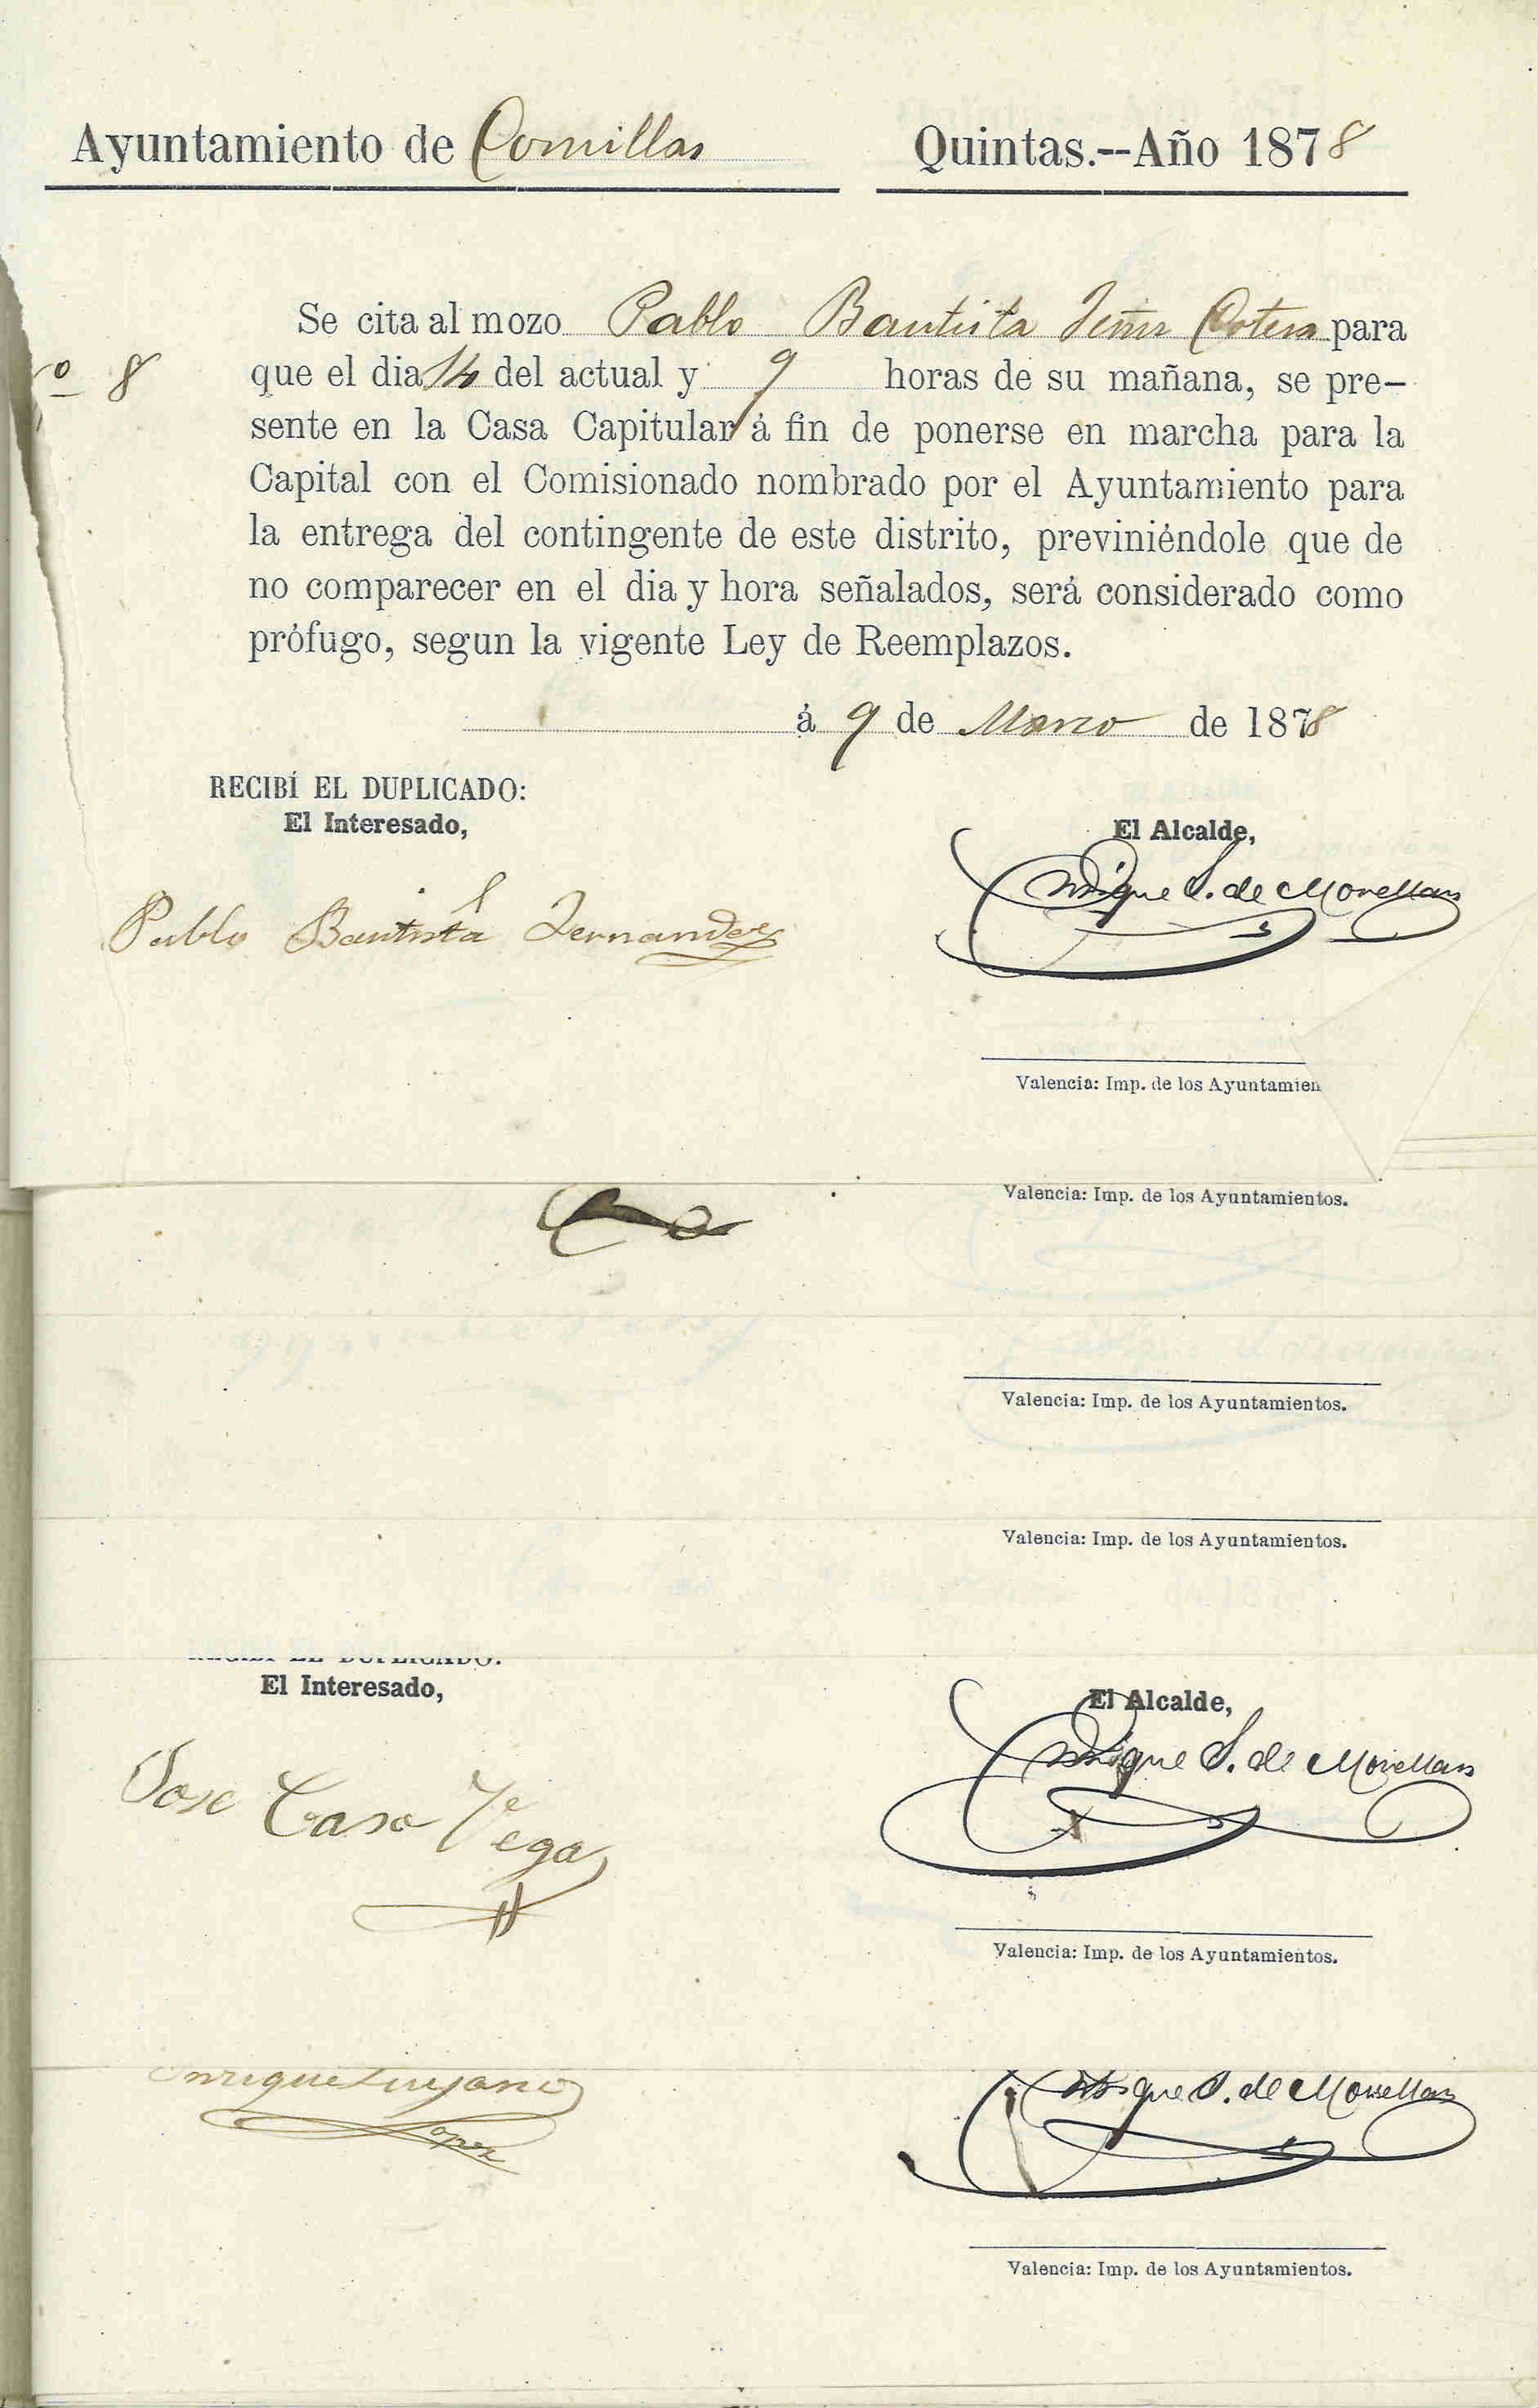 Ayuntamiento de Comillas Quintas.--Año 1878
Se cita al mozo Pablo Bautista Cotera para
º 8
que el dia 14 del actual y 9 horas de su mañana, se pre-
sente en la Casa Capitular á fin de ponerse en marcha para la
Capital con el Comisionado nombrado por el Ayuntamiento para
la entrega del contingente de este distrito, previniéndole que de
no comparecer en el dia y hora señalados, será considerado como
prófugo, segun la vigente Ley de Reemplazos.
á 9 de Marzo de 1878
RECIBÍ EL DUPLICADO:
El Interesado,
El Alcalde,
Pablo Bautista Fernandez
Enrique S. de Movellan
Valencia: Imp. de los Ayuntamien
Valencia: Imp. de los Ayuntamientos.
Valencia: Imp. de los Ayuntamientos.
Valencia: Imp. de los Ayuntamientos.
RECIBÍ EL DUPLICADO:
El Interesado,
El Alcalde,
Jose Caso Vega
Enrique S. de Movellan
Valencia: Imp. de los Ayuntamientos.
Enrique
Lopez
Enrique S. de Movellan
Valencia: Imp. de los Ayuntamientos.